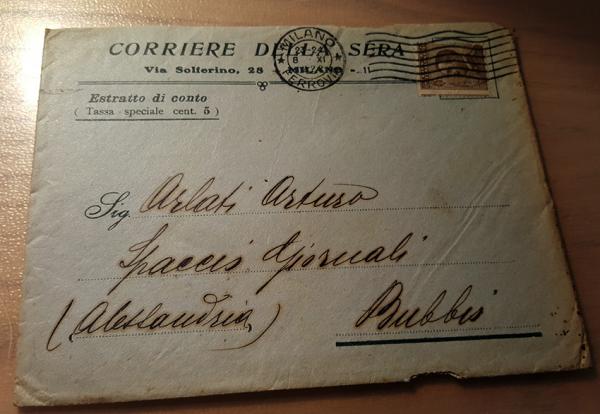 CORRIERE DELLA SERA
Via Solferino, 28 - MILANO - 11
Estratto di conto
( Tassa speciale cent. 5 )
MILANO
FERROVIA
Sig. Arlati Arturo
Spaccio Giornali
(Alessandria) Bubbio